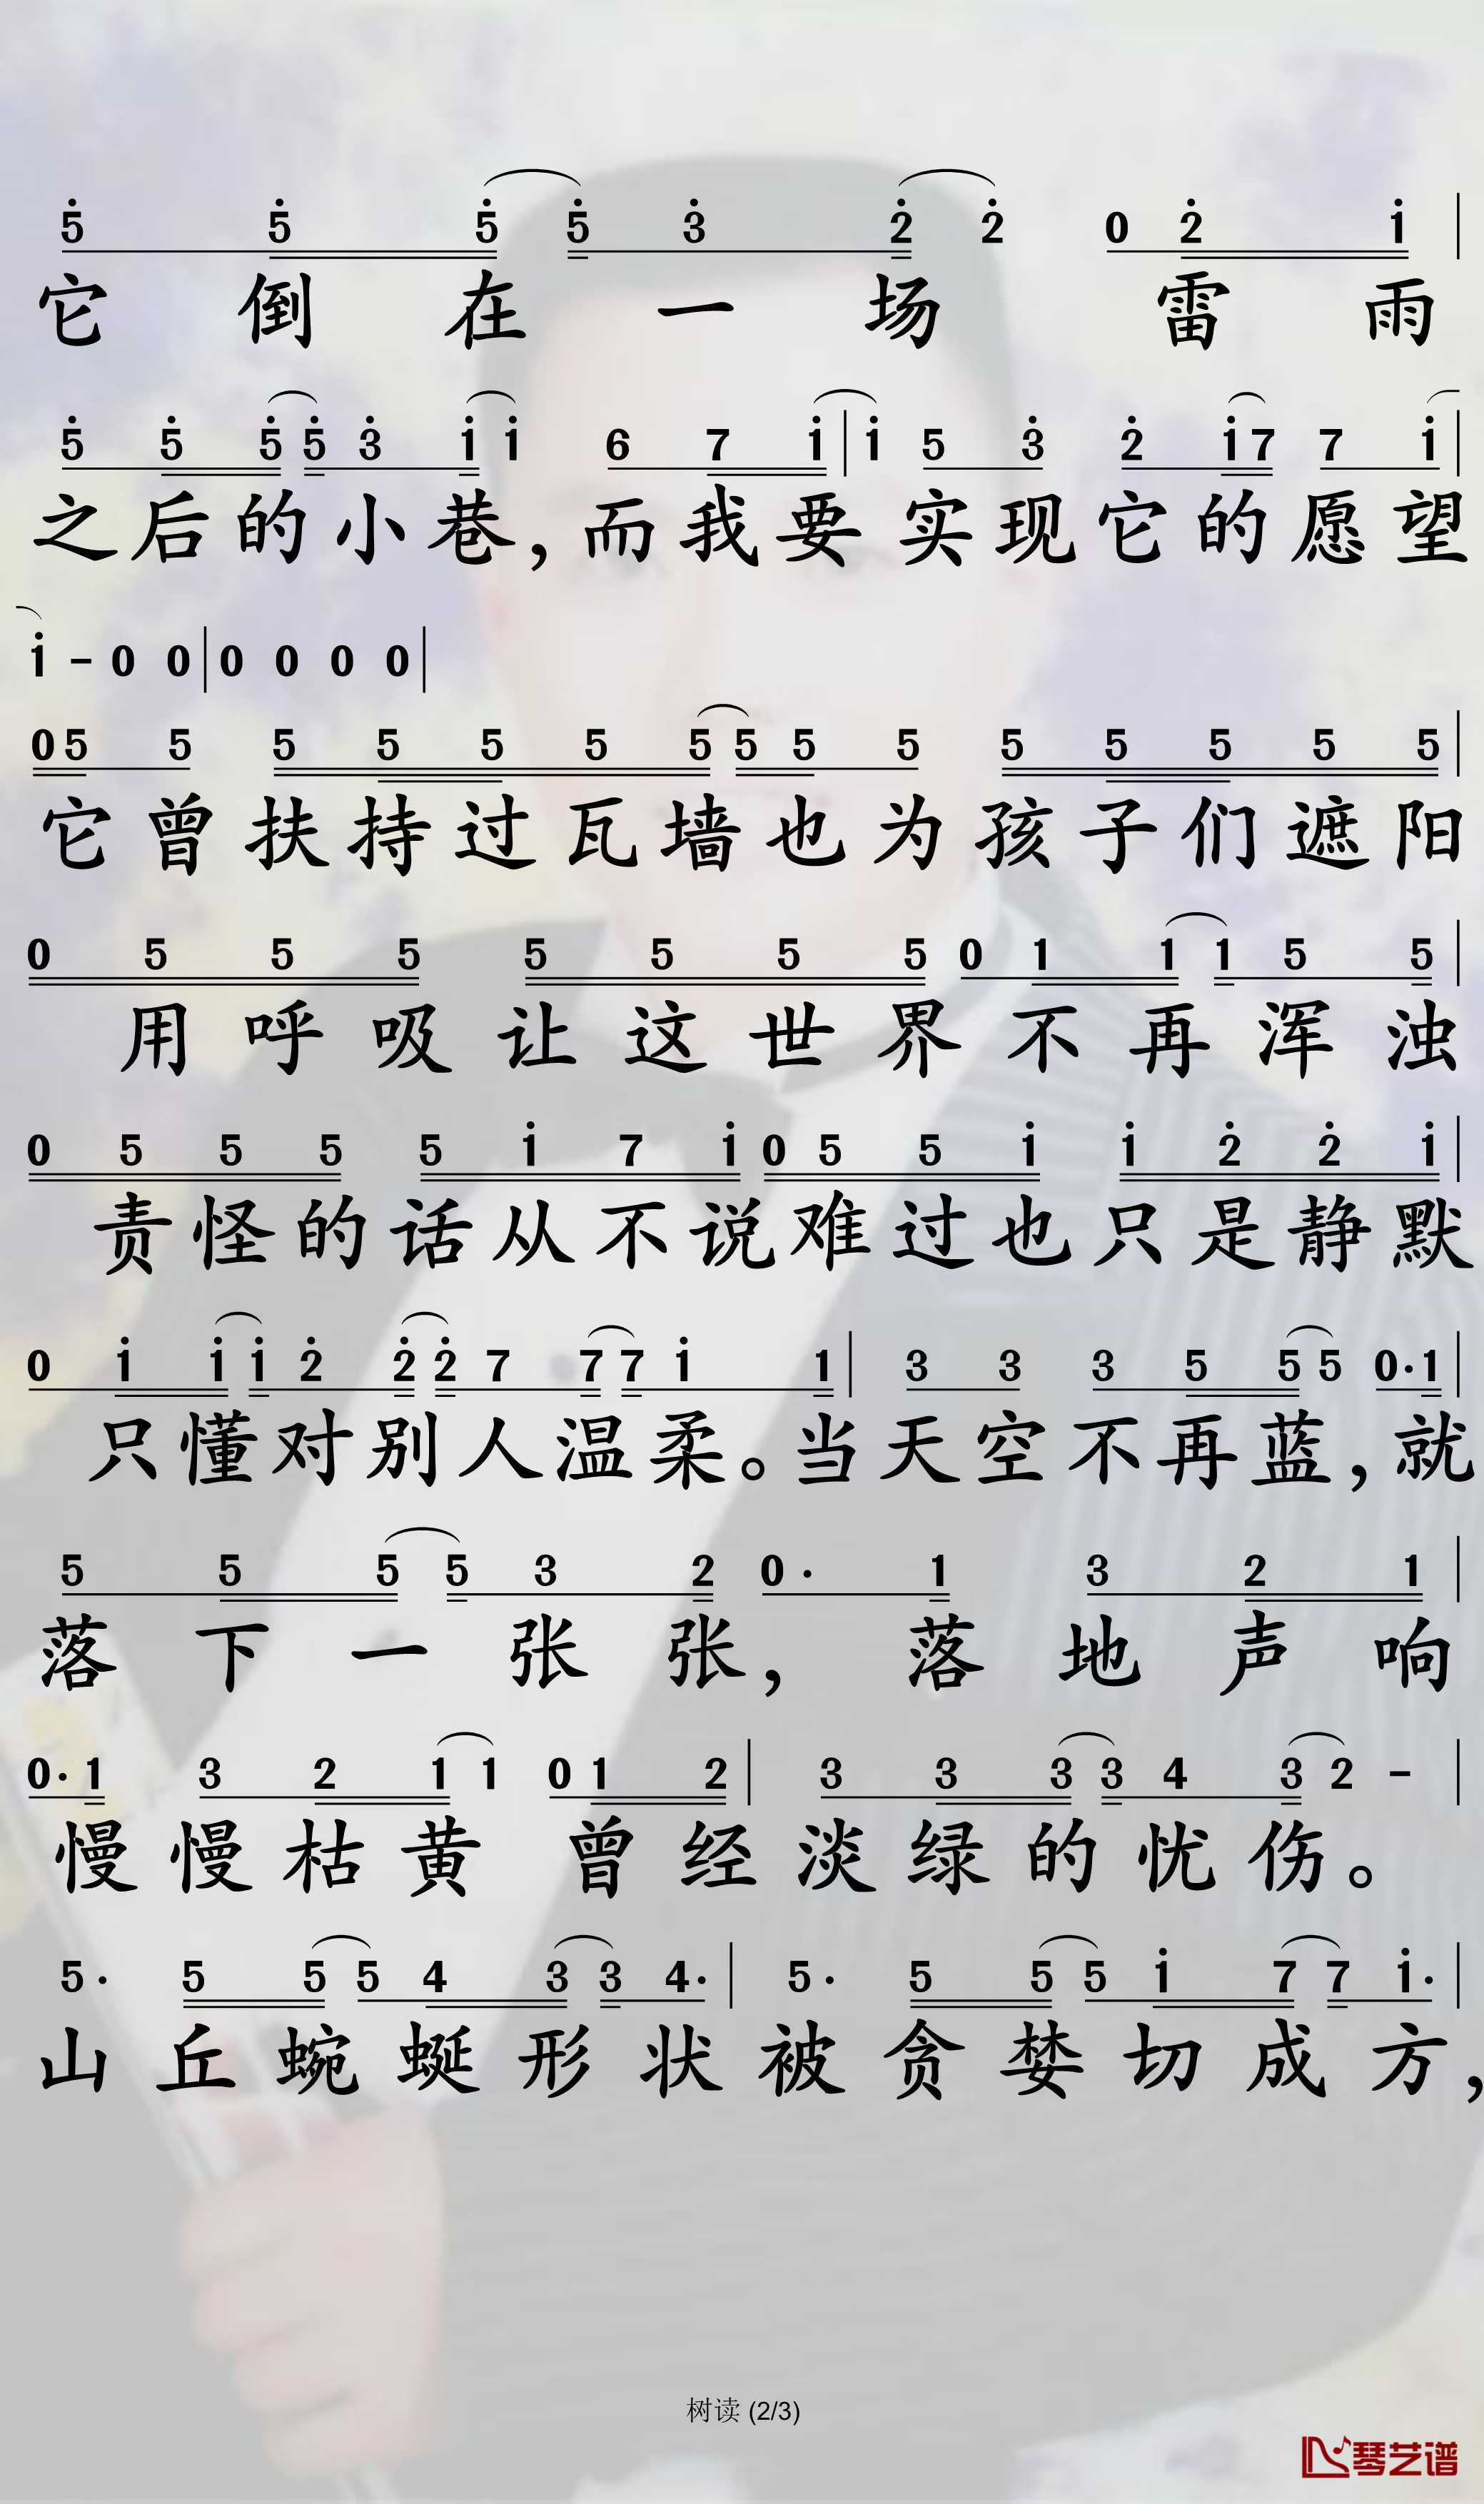 5̇ 5̇ 5̇ 5̇ 3̇ 2̇ 2̇ 0 2̇ 1̇ |
它倒在一场雷雨
5̇ 5̇ 5̇ 5̇ 3̇ 1̇ 1̇ 6 7 1̇ | 1̇ 5 3̇ 2̇ 1̇ 7 7 1̇ |
之后的小巷,而我要实现它的愿望
1̇ - 0 0 | 0 0 0 0 |
0 5 5 5 5 5 5 5 5 5 5 5 5 5 5 5 |
它曾扶持过瓦墙也为孩子们遮阳
0 5 5 5 5 5 5 5 0 1 1 1 5 5 |
用呼吸让这世界不再浑浊
0 5 5 5 5 1̇ 7 1̇ 0 5 5 1̇ 1̇ 2̇ 2̇ 1̇ |
责怪的话从不说难过也只是静默
0 1̇ 1̇ 1̇ 2̇ 2̇ 2̇ 7 7 7 1̇ 1 | 3 3 3 5 5 5 0· 1 |
只懂对别人温柔。当天空不再蓝,就
5 5 5 5 3 2 0· 1 3 2 1 |
落下一张张,落地声响
0· 1 3 2 1 1 0 1 2 | 3 3 3 3 4 3 2 - |
慢慢枯黄 曾经淡绿的忧伤。
5· 5 5 5 4 3 3 4· | 5· 5 5 5 1̇ 7 7 1̇· |
山丘蜿蜒形状被贪婪切成方,
树读 (2/3)
琴艺谱